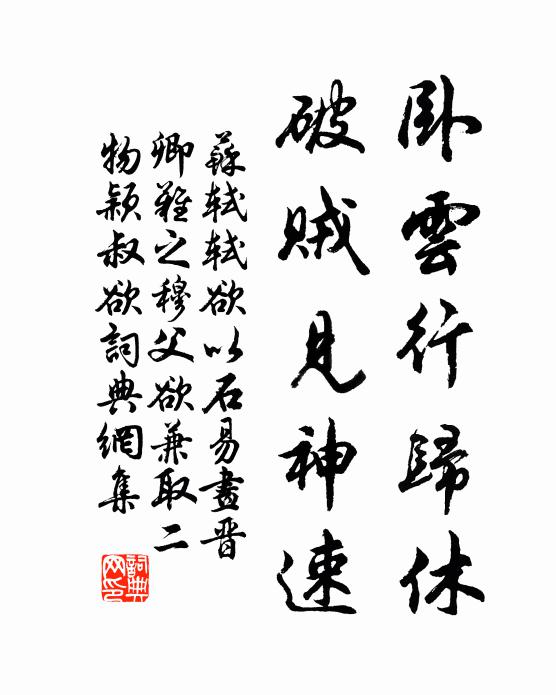 臥雲行歸休
破賊見神速
蘇軾軾欲以石易畫晋
卿難之穆父欲兼取二
物穎叔欲詞典網集
詞典
网印